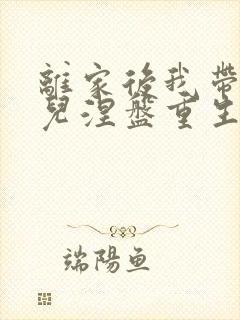 離家後我帶
兒涅盤重生
端陽魚